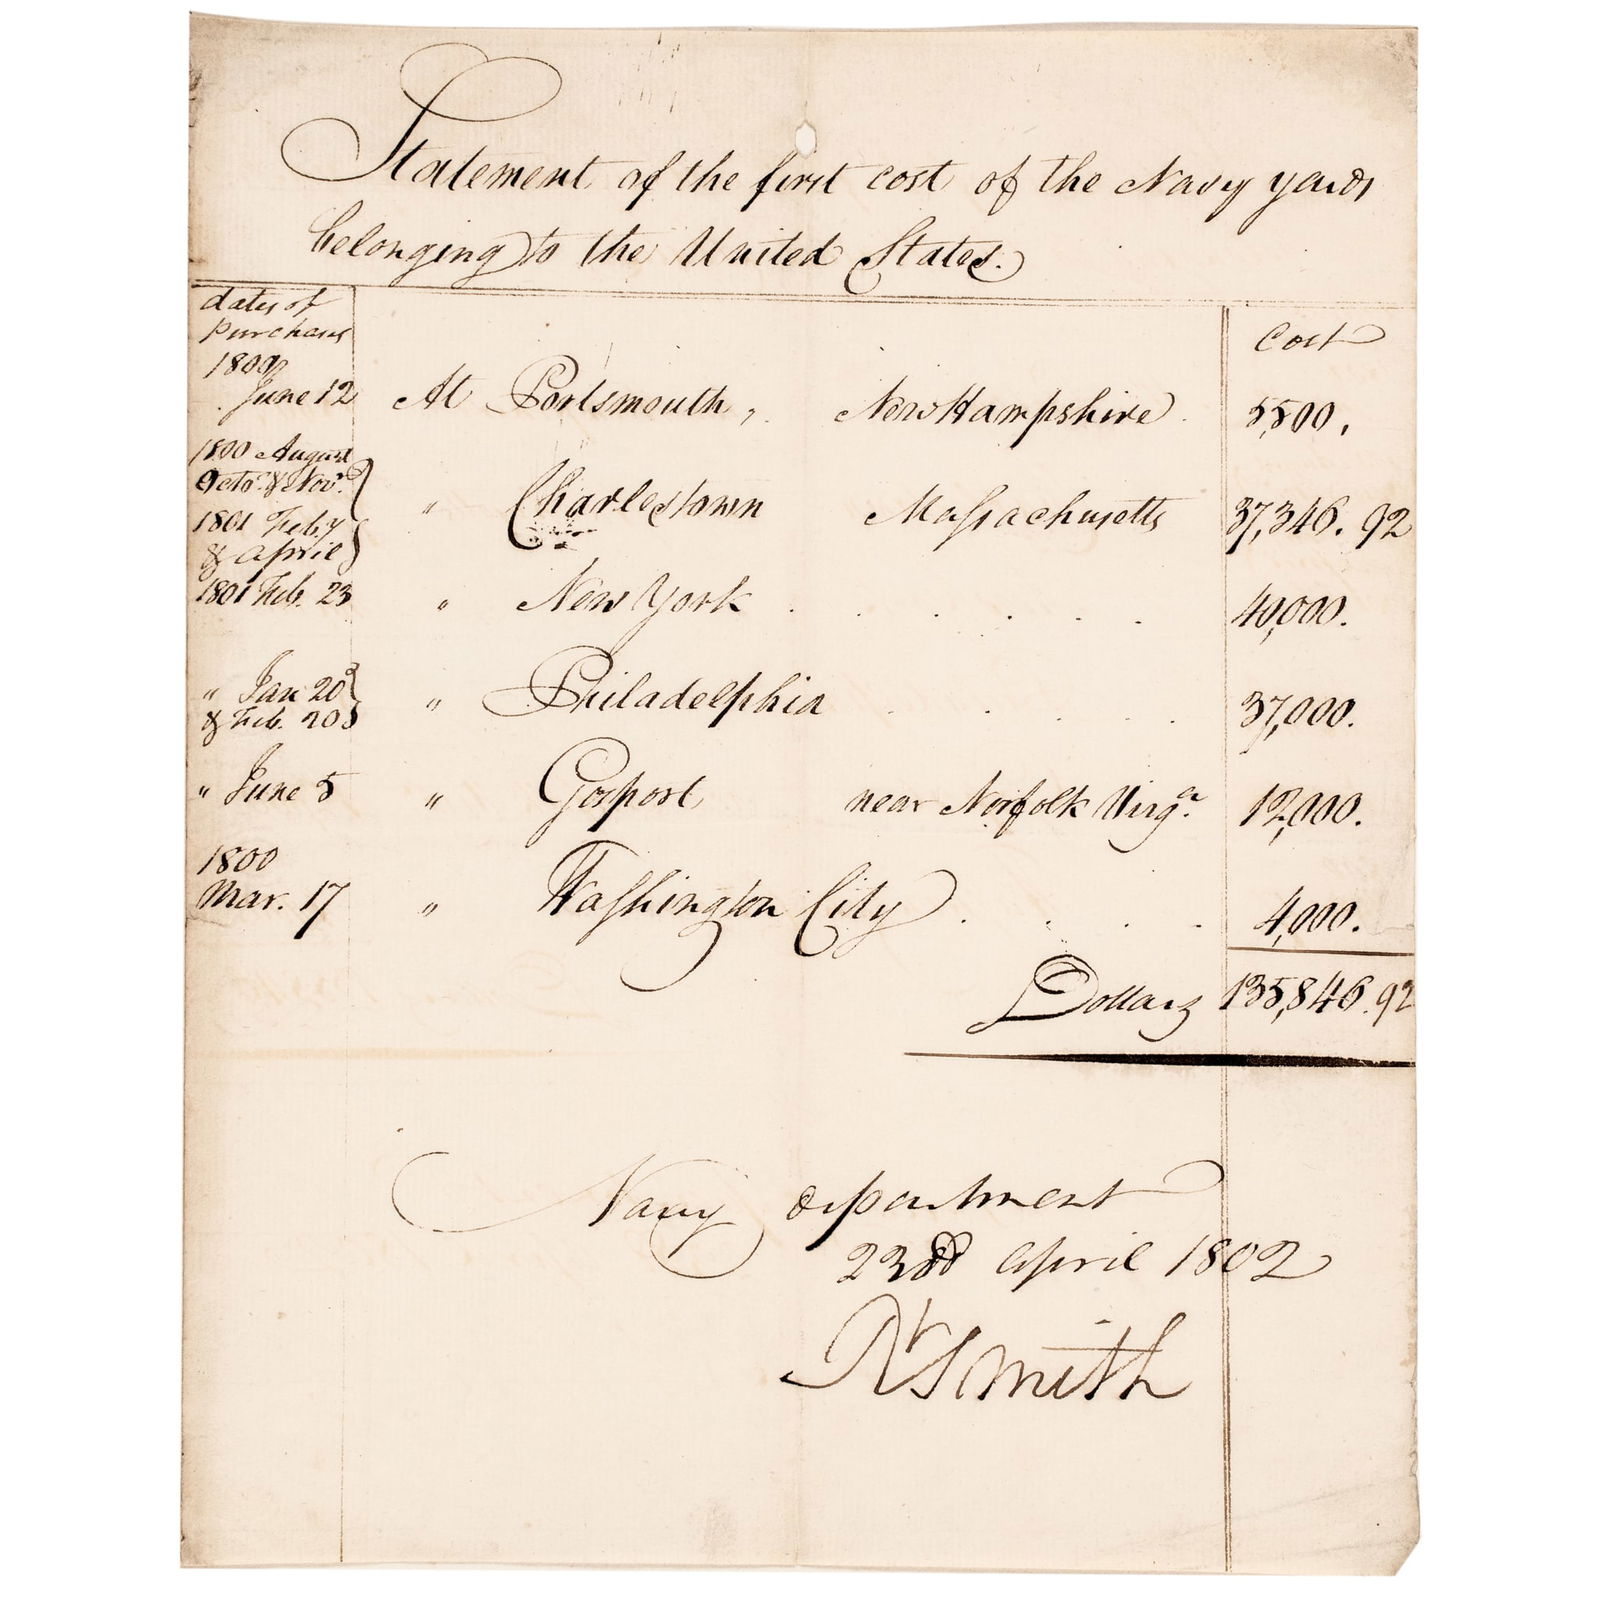 Statement of the first cost of the Navy yards
belonging to the United States.
dates of
purchases
Cost
1800
June 12 At Portsmouth, New Hampshire 5,500.
1800 August
Octo. & Nov.
1801 Feby
& april
" Charlestown Massachusetts 37,346. 92
1801 Feb. 23 " New York . . . . . 40,000.
" Jan 20
& Feb. 20
" Philadelphia . . . . . 37,000.
" June 5 " Gosport near Norfolk Virga. 12,000.
1800
Mar. 17 " Washington City . . . . 4,000.
Dollars 135,846.92
Navy department
23d april 1802
Rt Smith